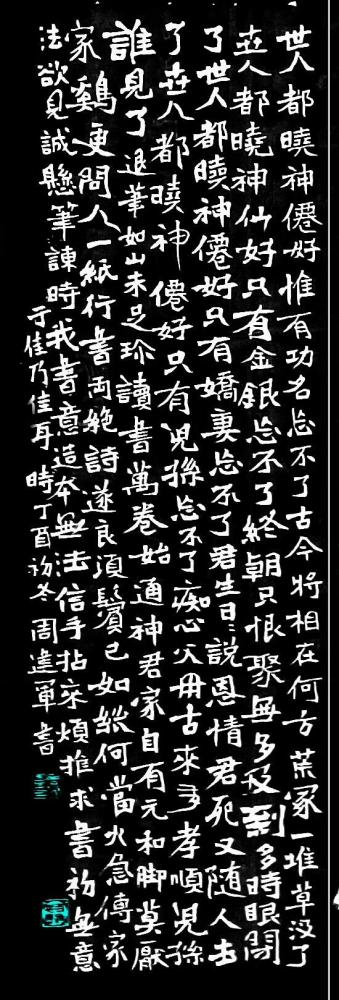 世人都曉神僊好惟有功名忘不了古今將相在何方荒冢一堆草沒了
世人都曉神仙好只有金銀忘不了終朝只恨聚無多及到多時眼閉
了世人都曉神僊好只有嬌妻忘不了君生日〻說恩情君死又隨人去
了世人都曉神僊好只有兒孫忘不了痴心父母古來多孝順兒孫
誰見了退筆如山未足珍讀書萬卷始通神君家自有元和脚莫厭
家鷄更問人一紙行書兩絕詩遂良須鬢已如絲何當火急傳家
法欲見誠懸筆諫時我書意造本無法信手拈來煩推求書初無意
于佳乃佳耳時丁酉初冬周建軍書